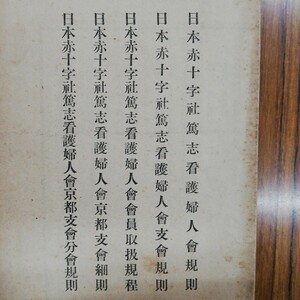 日本赤十字社篤志看護婦人會規則
日本赤十字社篤志看護婦人會支會規則
日本赤十字社篤志看護婦人會會員取扱規程
日本赤十字社篤志看護婦人會京都支會細則
日本赤十字社篤志看護婦人會京都支會分會規則